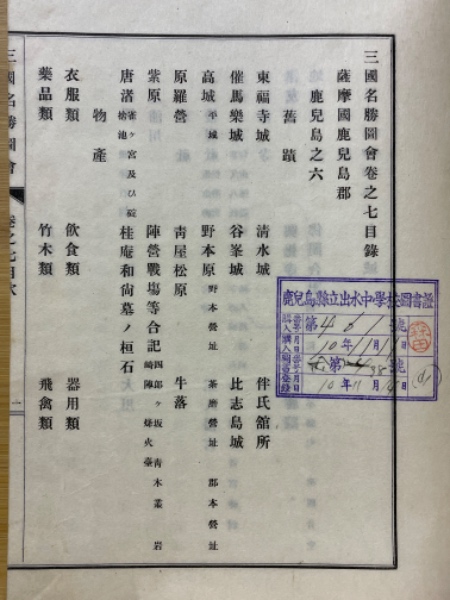 三國名勝圖會卷之七目錄
薩摩國鹿兒島郡
鹿兒島之六
舊蹟
東福寺城 清水城 伴氏舘所
催馬樂城 谷峯城 比志島城
高城 平城 野本原 野本營址 茶磨營址 郡本營址
原羅營 靑屋松原 牛落
紫原 陣營戰場等合記 四郎ヶ坂 靑木 岩崎陣 烽火臺
唐渚 雀ヶ宮及ひ 桂庵和尙墓ノ桓石
物產
衣服類 飮食類 器用類
藥品類 竹木類 飛禽類
三國名勝圖會 卷之七目次 一
鹿兒島縣立出水中學校圖書證
第 號
購入 10年11月
第 38 號
10年11月